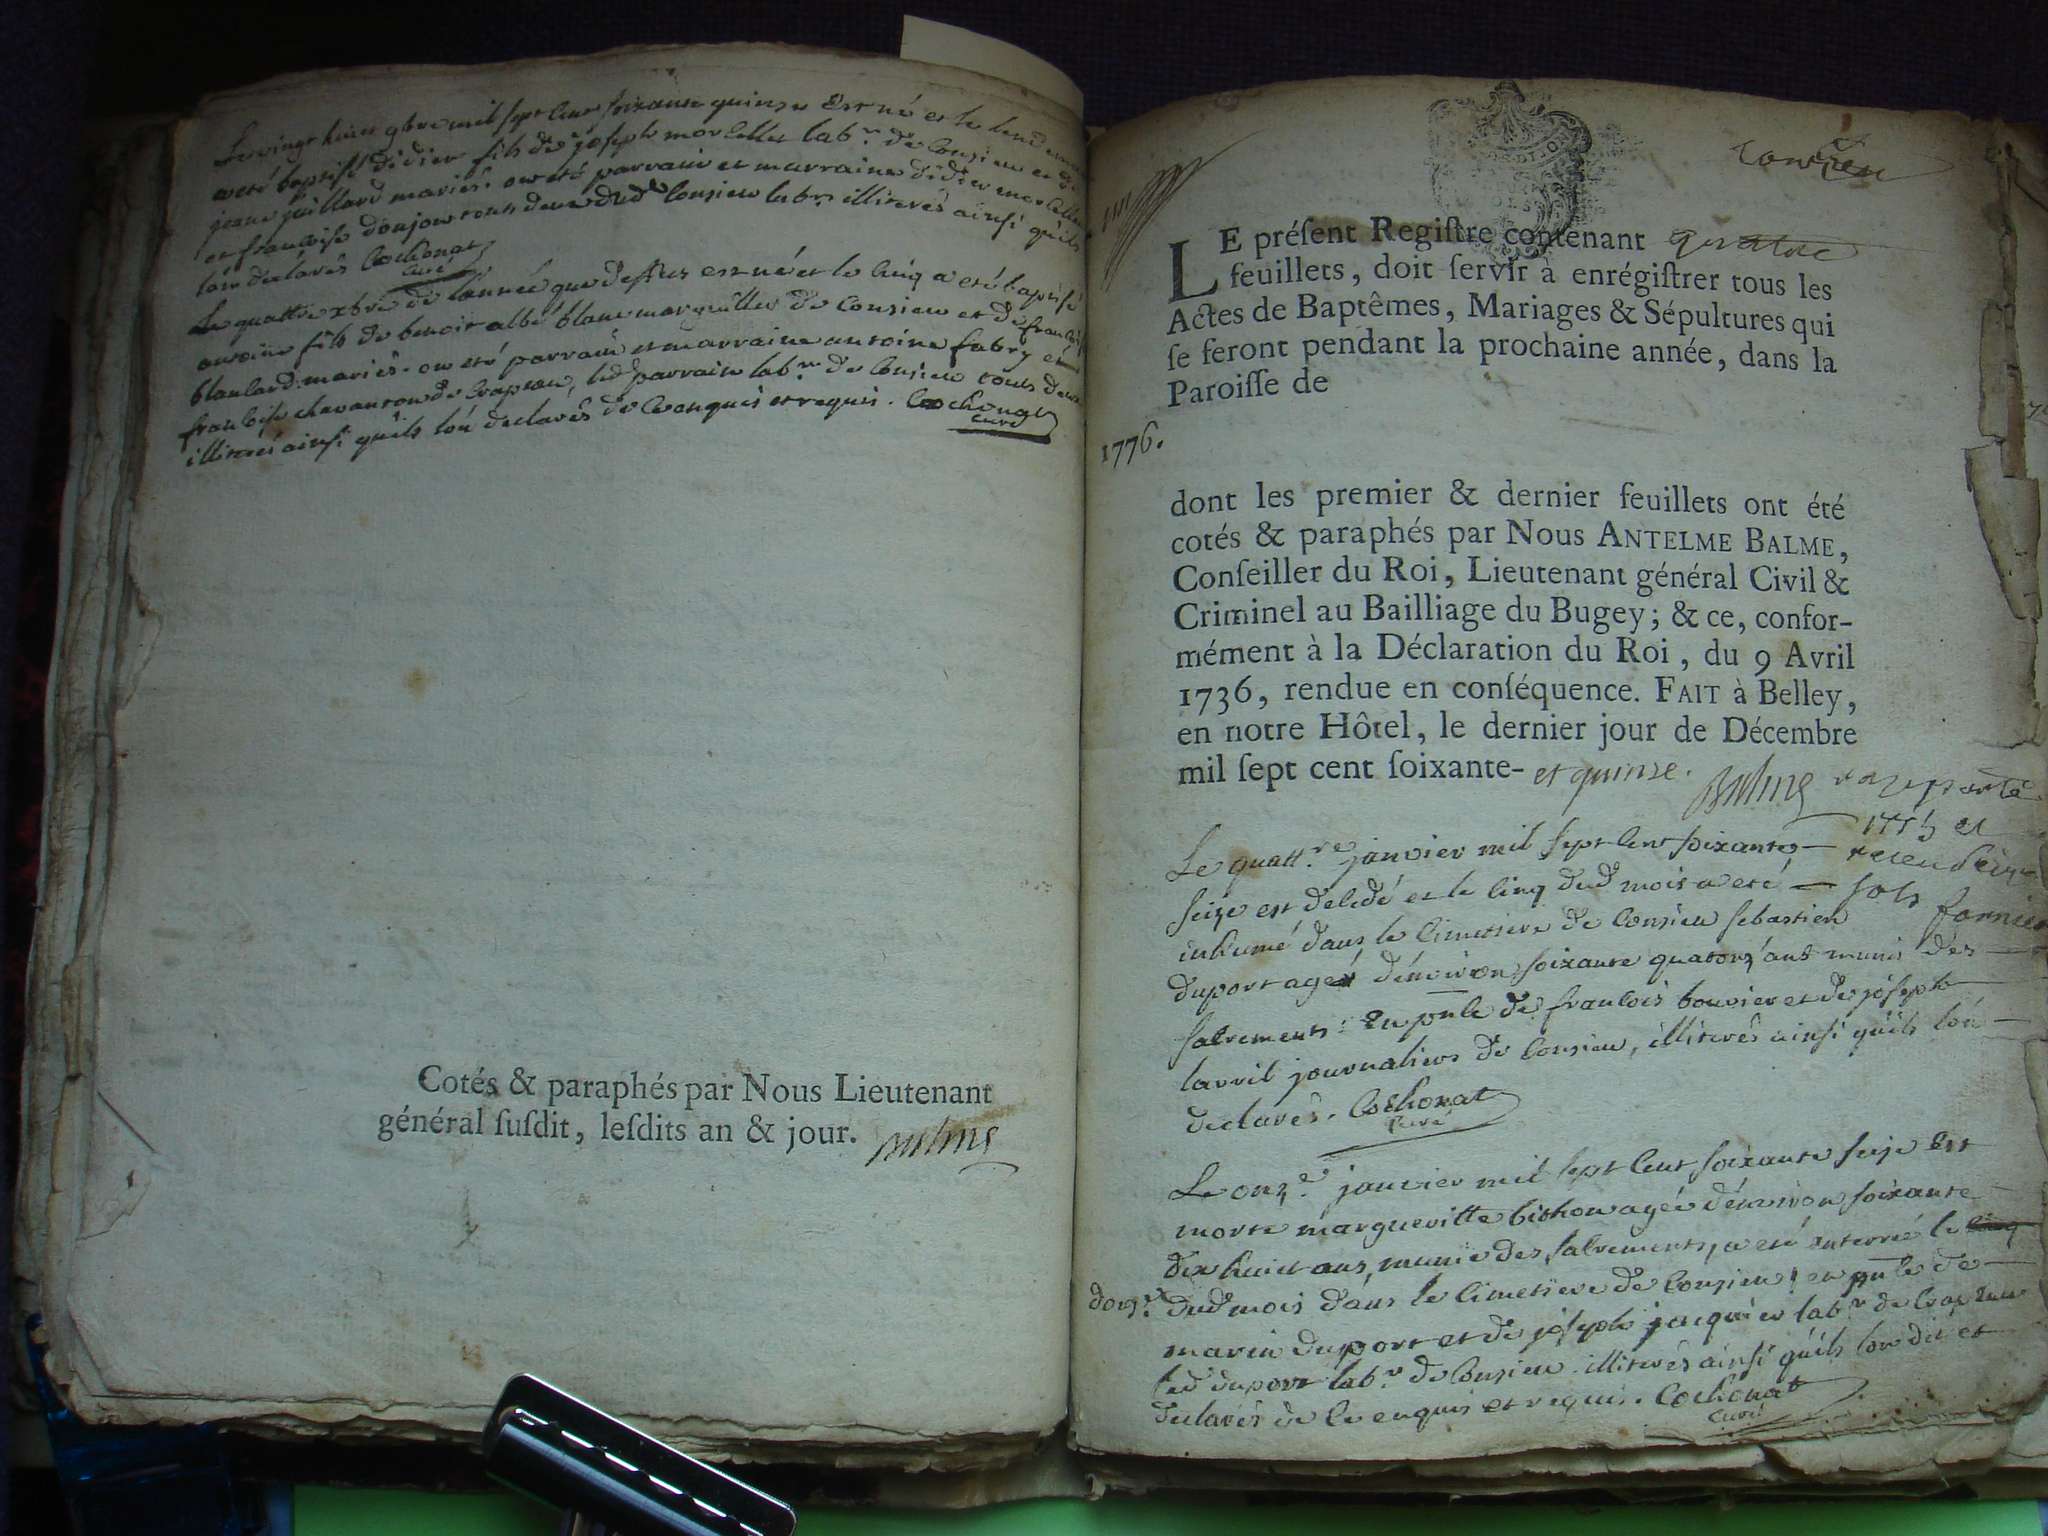 Le vingt huit 9bre mil sept cent soixante quinze est né et le lendemain
a eté baptisé didier fils de joseph morcellet lab.r de Consieu et de
jeane juillard mariés. ont eté parrain et marraine didier morcellet
et francoise donjour tous deux dud Consieu lab.rs illiterés ainsi qu'ils
lon declarés Cochonat
curé
Le quattre xbre de l'année que dessus est né et le cinq a eté baptisé
antoine fils de benoit albé blanc marguiller de Consieu et de francoise
blanlard mariés. ont eté parrain et marraine antoine fabry et
francoise chavanton de Crapeau, led parrain lab.r de Consieu tous deux
illiterés ainsi qu'ils lon declarés de ce enquis et requis. Cochonat
curé
Cotés & paraphés par Nous Lieutenant
général susdit, lesdits an & jour. Balme
Consieu
LE préſent Regiſtre contenant quatre
feuillets, doit ſervir à enrégiſtrer tous les
Actes de Baptêmes, Mariages & Sépultures qui
ſe feront pendant la prochaine année, dans la
Paroiſſe de
1776.
dont les premier & dernier feuillets ont été
cotés & paraphés par Nous ANTELME BALME,
Conſeiller du Roi, Lieutenant général Civil &
Criminel au Bailliage du Bugey; & ce, confor-
mément à la Déclaration du Roi, du 9 Avril
1736, rendue en conſéquence. FAIT à Belley,
en notre Hôtel, le dernier jour de Décembre
mil ſept cent ſoixante- et quinze. Balme
Le quatt.re janvier mil sept cent soixante
seize est decedé et le cinq dud mois a eté
inhumé dans le cimetiere de Consieu sebastien
duport agé d'environ soixante quatorz' ans munis des
sacrements. En pnce de francois bouvier et de joseph
larril journaliers de Consieu, illiterés ainsi qu'ils lon
declarés. Cochonat
curé
Le onz.e janvier mil sept cent soixante seize est
morte margueritte bichon agée d'environ soixante
dix huict ans, munie des sacrements, a eté enterré le cinq
douz.e dud mois dans le cimetiere de Consieu, en pnce de
marin duport et de joseph jacquier lab.r de Crapeau
led duport lab.r de Consieu. illiterés ainsi qu'ils lon dit et
declarés de ce enquis et requis. Cochonat
curé